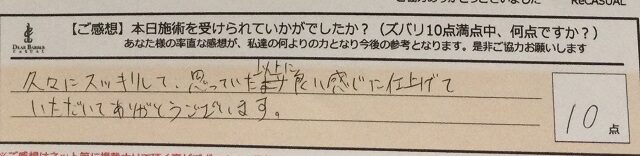 ReCASUAL
DEAR BARBER
CASUAL
【ご感想】本日施術を受けられていかがでしたか？（ズバリ10点満点中、何点ですか？）
あなた様の率直な感想が、私達の何よりの力となり今後の参考となります。是非ご協力お願いします
久々にスッキリして、思っていた以上に良い感じに仕上げて
いただいてありがとうございます。
10点